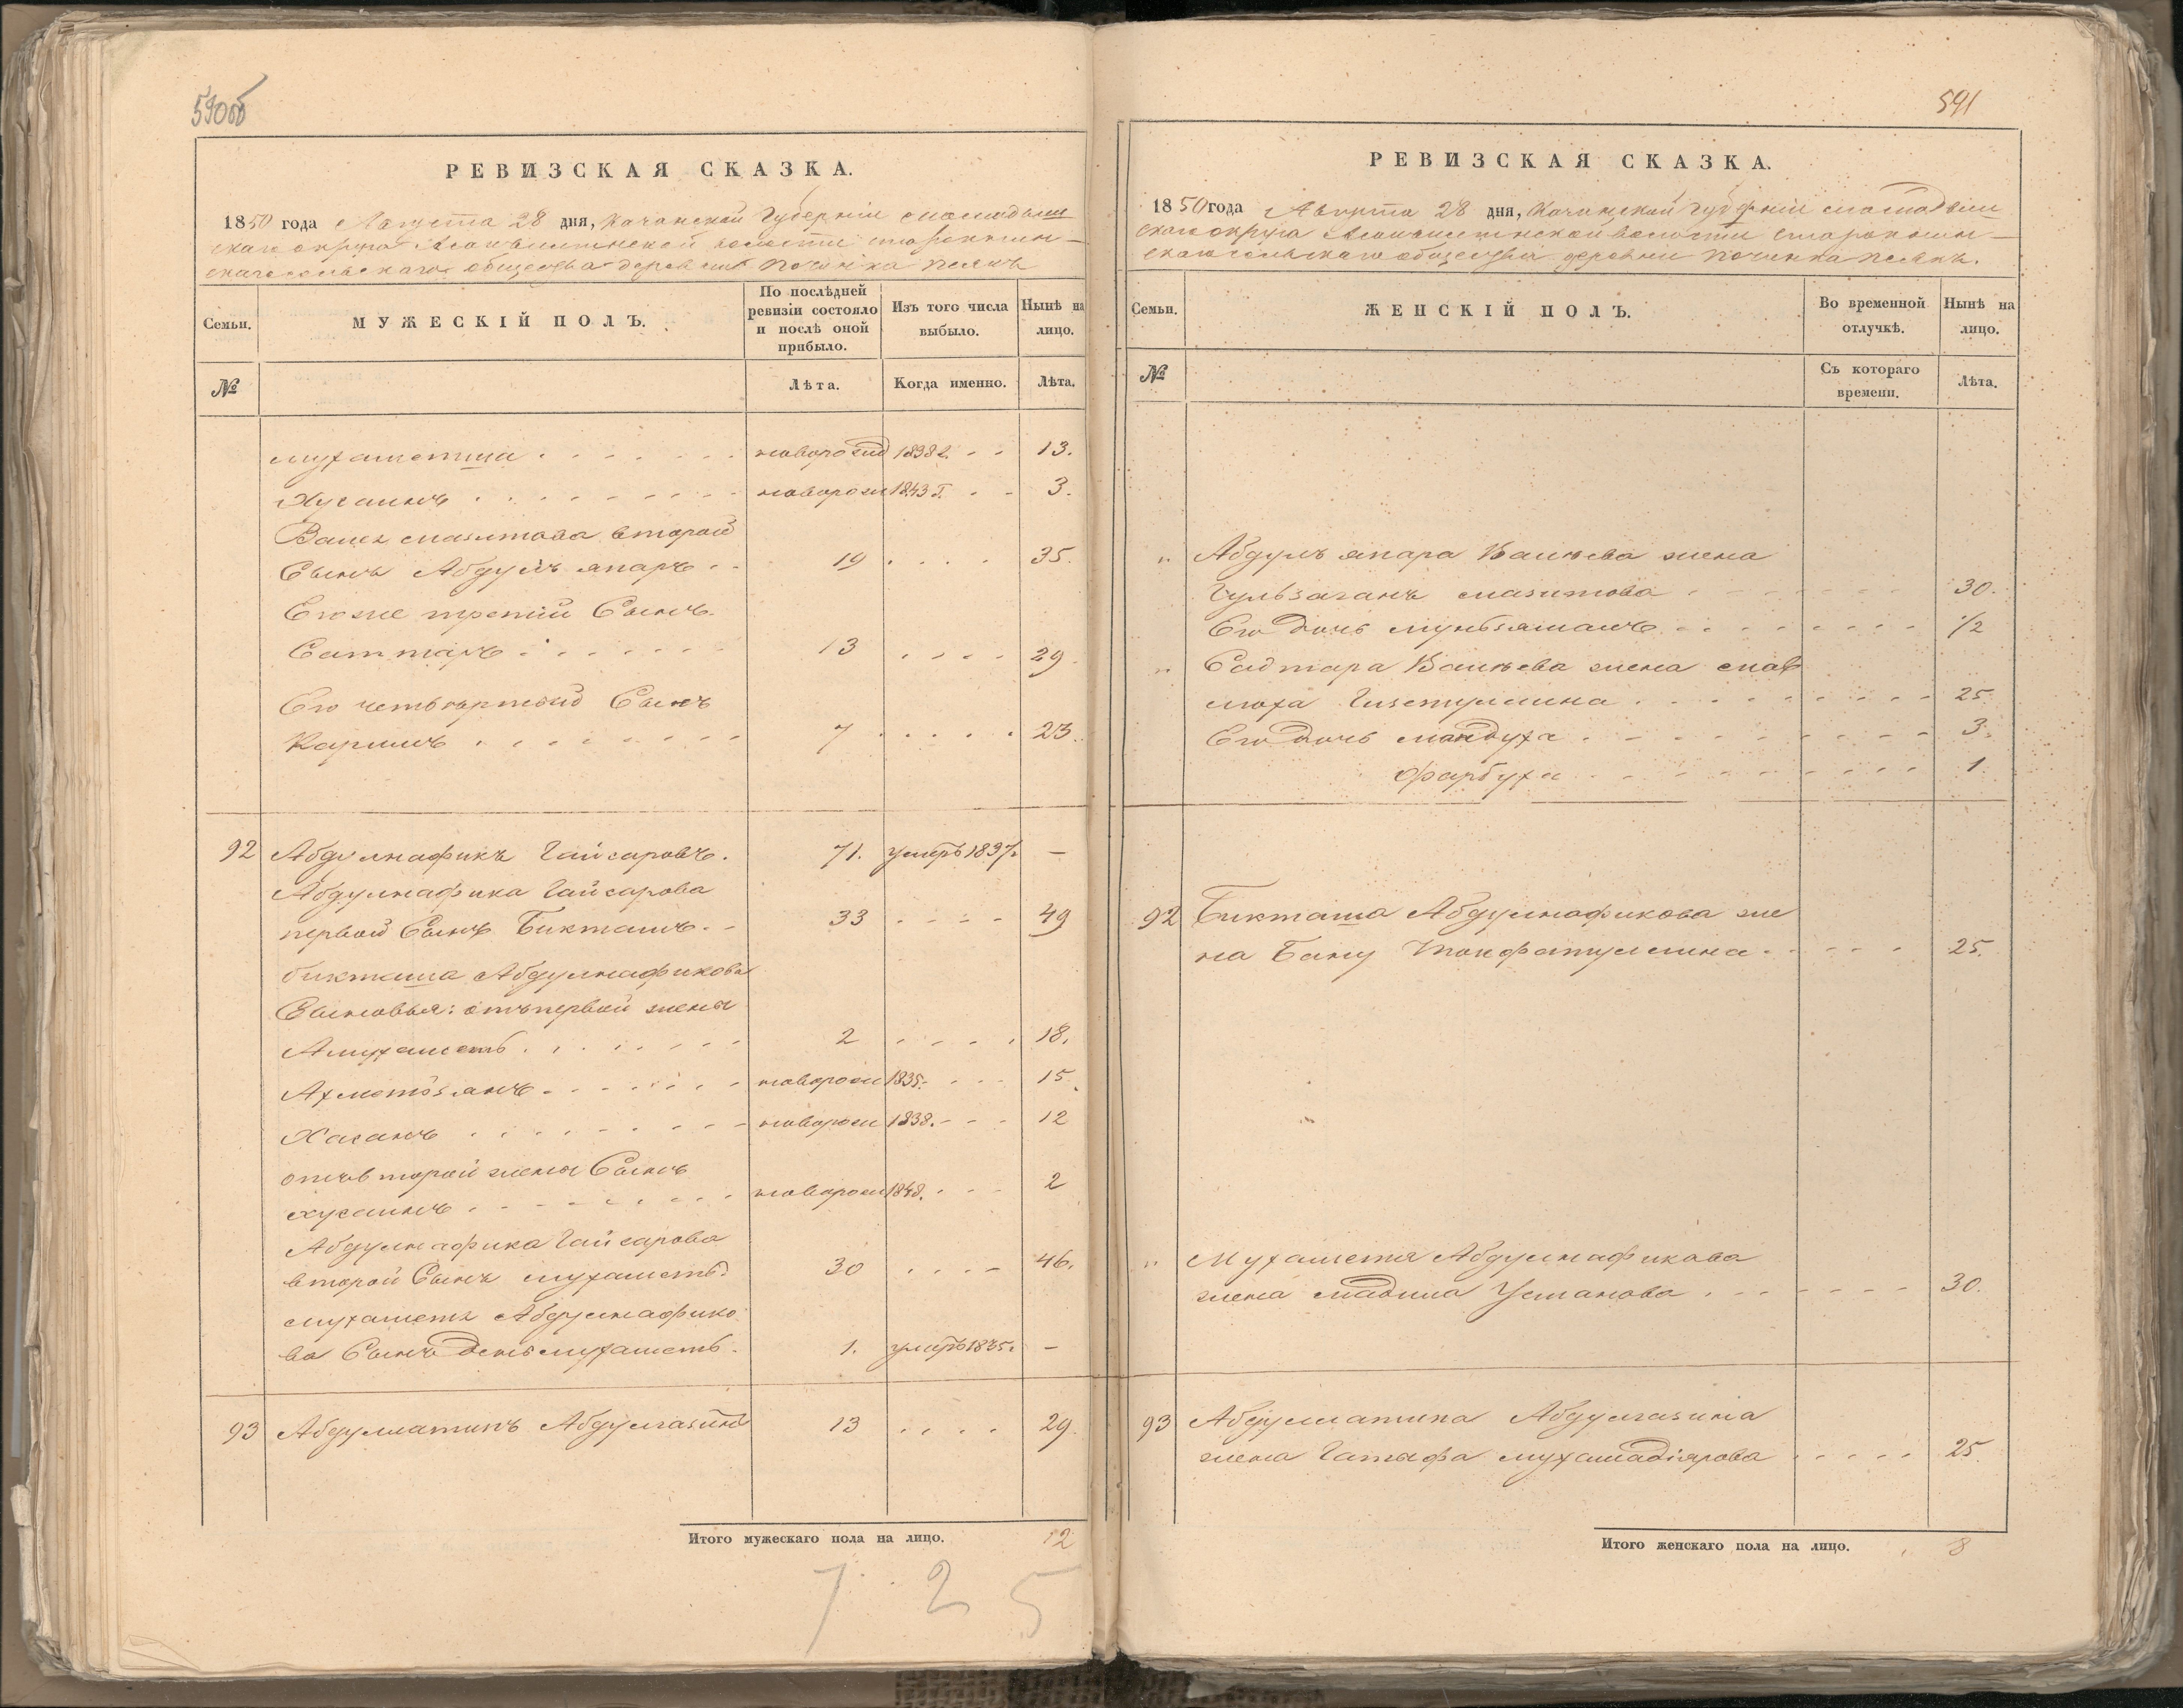 590об
РЕВИЗСКАЯ СКАЗКА.
1850 года Августа 28 дня, Казанской Губерніи Мамадыш
скаго округа волости
скаго сельскаго общества деревни Починка
Семьи.
МУЖЕСКІЙ ПОЛЪ.
По послѣдней ревизіи состояло и послѣ оной прибыло.
Изъ того числа выбыло.
Нынѣ на лицо.
№
Лѣта.
Когда именно.
Лѣта.
Мухаметша новорожд 1838 г. 13.
Хусаинъ новорож 1843 г. 3.
второй
Сынъ Абдулъ япаръ 19 35.
Его же третій Сынъ
Саттаръ 13 29
Его четвертой Сынъ
Каримъ 7 23.
92 Абдулнафикъ Гайсаровъ. 71. умеръ 1837. —
Абдулнафика Гайсарова
первой Сынъ Бикташъ. 33 49
бикташа Абдулнафикова
Сыновья: отъ первой жены
Амухаметь 2 18.
Ахметзянъ новорож 1835. 15
Хасанъ новорож 1838. 12
отъ второй жены Сынъ
хусаинъ новорож 1848. 2
Абдулнафика Гайсарова
второй Сынъ мухаметь 30 46.
мухаметя Абдулнафико
ва Сынъ Деньмухаметь. 1. умеръ 1835. —
93 Абдуллатипъ Абдулгазинъ 13 29.
Итого мужескаго пола на лицо. 12
7 2 5
591
РЕВИЗСКАЯ СКАЗКА.
1850 года Августа 28 дня, Казанской Губерніи Мамадыш
скаго округа волости
скаго сельскаго общества деревни Починка
Семьи.
ЖЕНСКІЙ ПОЛЪ.
Во временной отлучкѣ.
Нынѣ на лицо.
№
Съ котораго времени.
Лѣта.
„ Абдулъ япара Валѣева жена
мазитова 30.
Его дочь 1/2
„ Садтара Валѣева жена мах
25.
Его дочь мандуха 3.
фарбуха 1.
92 Бикташа Абдулнафикова же
на Бану 25.
„ Мухаметя Абдулнафикова
жена мадина Усманова 30.
93 Абдуллатипа Абдулгазина
жена Гатыфа мухамадіярова 25
Итого женскаго пола на лицо. 8